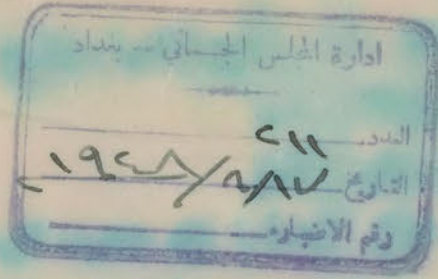 ادارة المجلس الجسماني - بغداد
العدد ٢١١
التاريخ
رقم الاضبارة